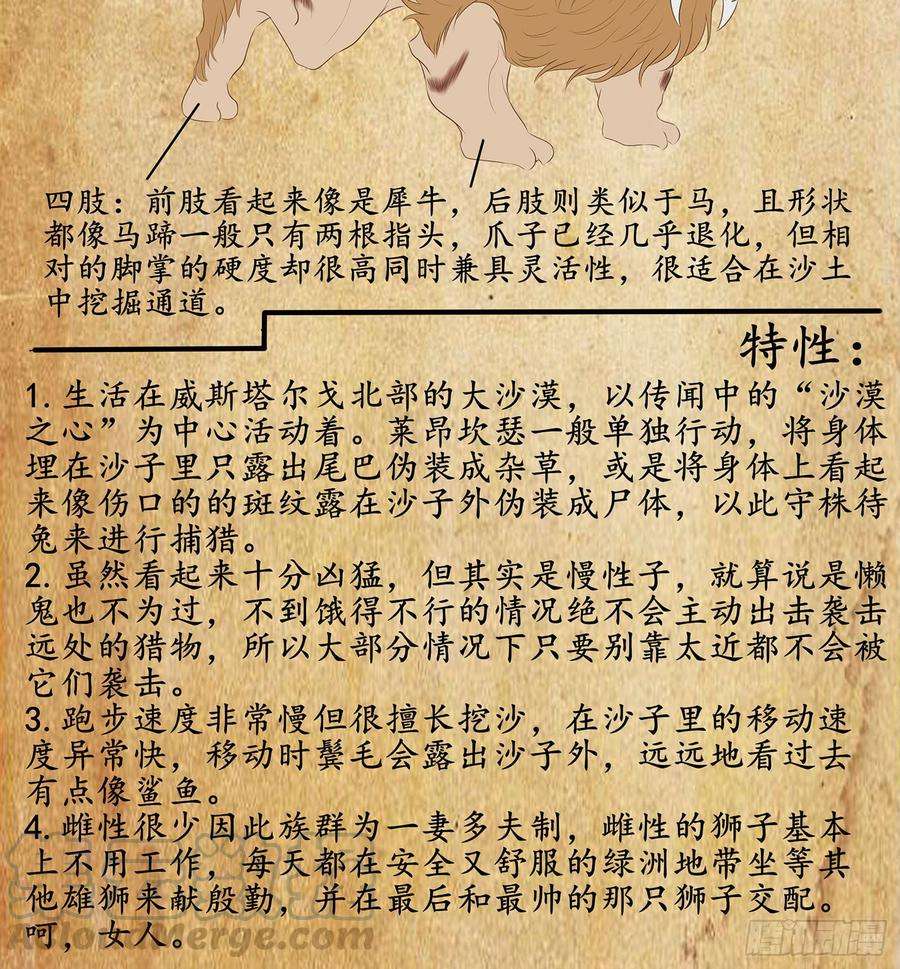 四肢：前肢看起来像是犀牛，后肢则类似于马，且形状
都像马蹄一般只有两根指头，爪子已经几乎退化，但相
对的脚掌的硬度却很高同时兼具灵活性，很适合在沙土
中挖掘通道。
特性：
1. 生活在威斯塔尔戈北部的大沙漠，以传闻中的“沙漠
之心”为中心活动着。莱昂坎瑟一般单独行动，将身体
埋在沙子里只露出尾巴伪装成杂草，或是将身体上看起
来像伤口的的斑纹露在沙子外伪装成尸体，以此守株待
兔来进行捕猎。
2. 虽然看起来十分凶猛，但其实是慢性子，就算说是懒
鬼也不为过，不到饿得不行的情况绝不会主动出击袭击
远处的猎物，所以大部分情况下只要别靠太近都不会被
它们袭击。
3. 跑步速度非常慢但很擅长挖沙，在沙子里的移动速
度异常快，移动时鬓毛会露出沙子外，远远地看过去
有点像鲨鱼。
4. 雌性很少因此族群为一妻多夫制，雌性的狮子基本
上不用工作，每天都在安全又舒服的绿洲地带坐等其
他雄狮来献殷勤，并在最后和最帅的那只狮子交配。
呵，女人。
AcloudMerge.com
腾讯动漫